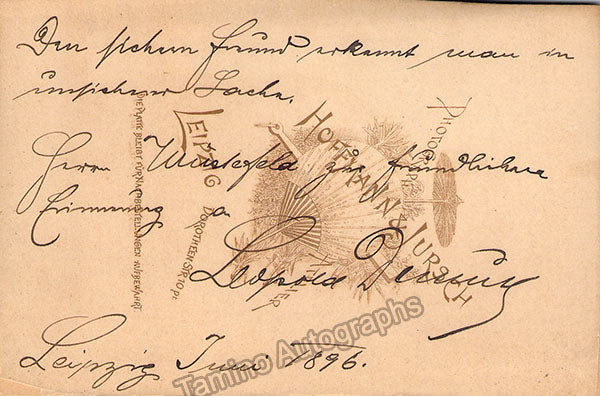 Den sichern Freund erkennt man in
unsicherer Sache.
Herrn Wustefeld zur freundlichen
Erinnerung a
Leopold Demuth
Leipzig Juni 1896.
PHOTOGRAPH
HOFFMANN & JURSCH
ATELIER
LEIPZIG DOROTHEENSTR 10 pt.
DIE PLATTE BLEIBT FÜR NACHBESTELLUNGEN AUFBEWAHRT.
Tamino Autographs